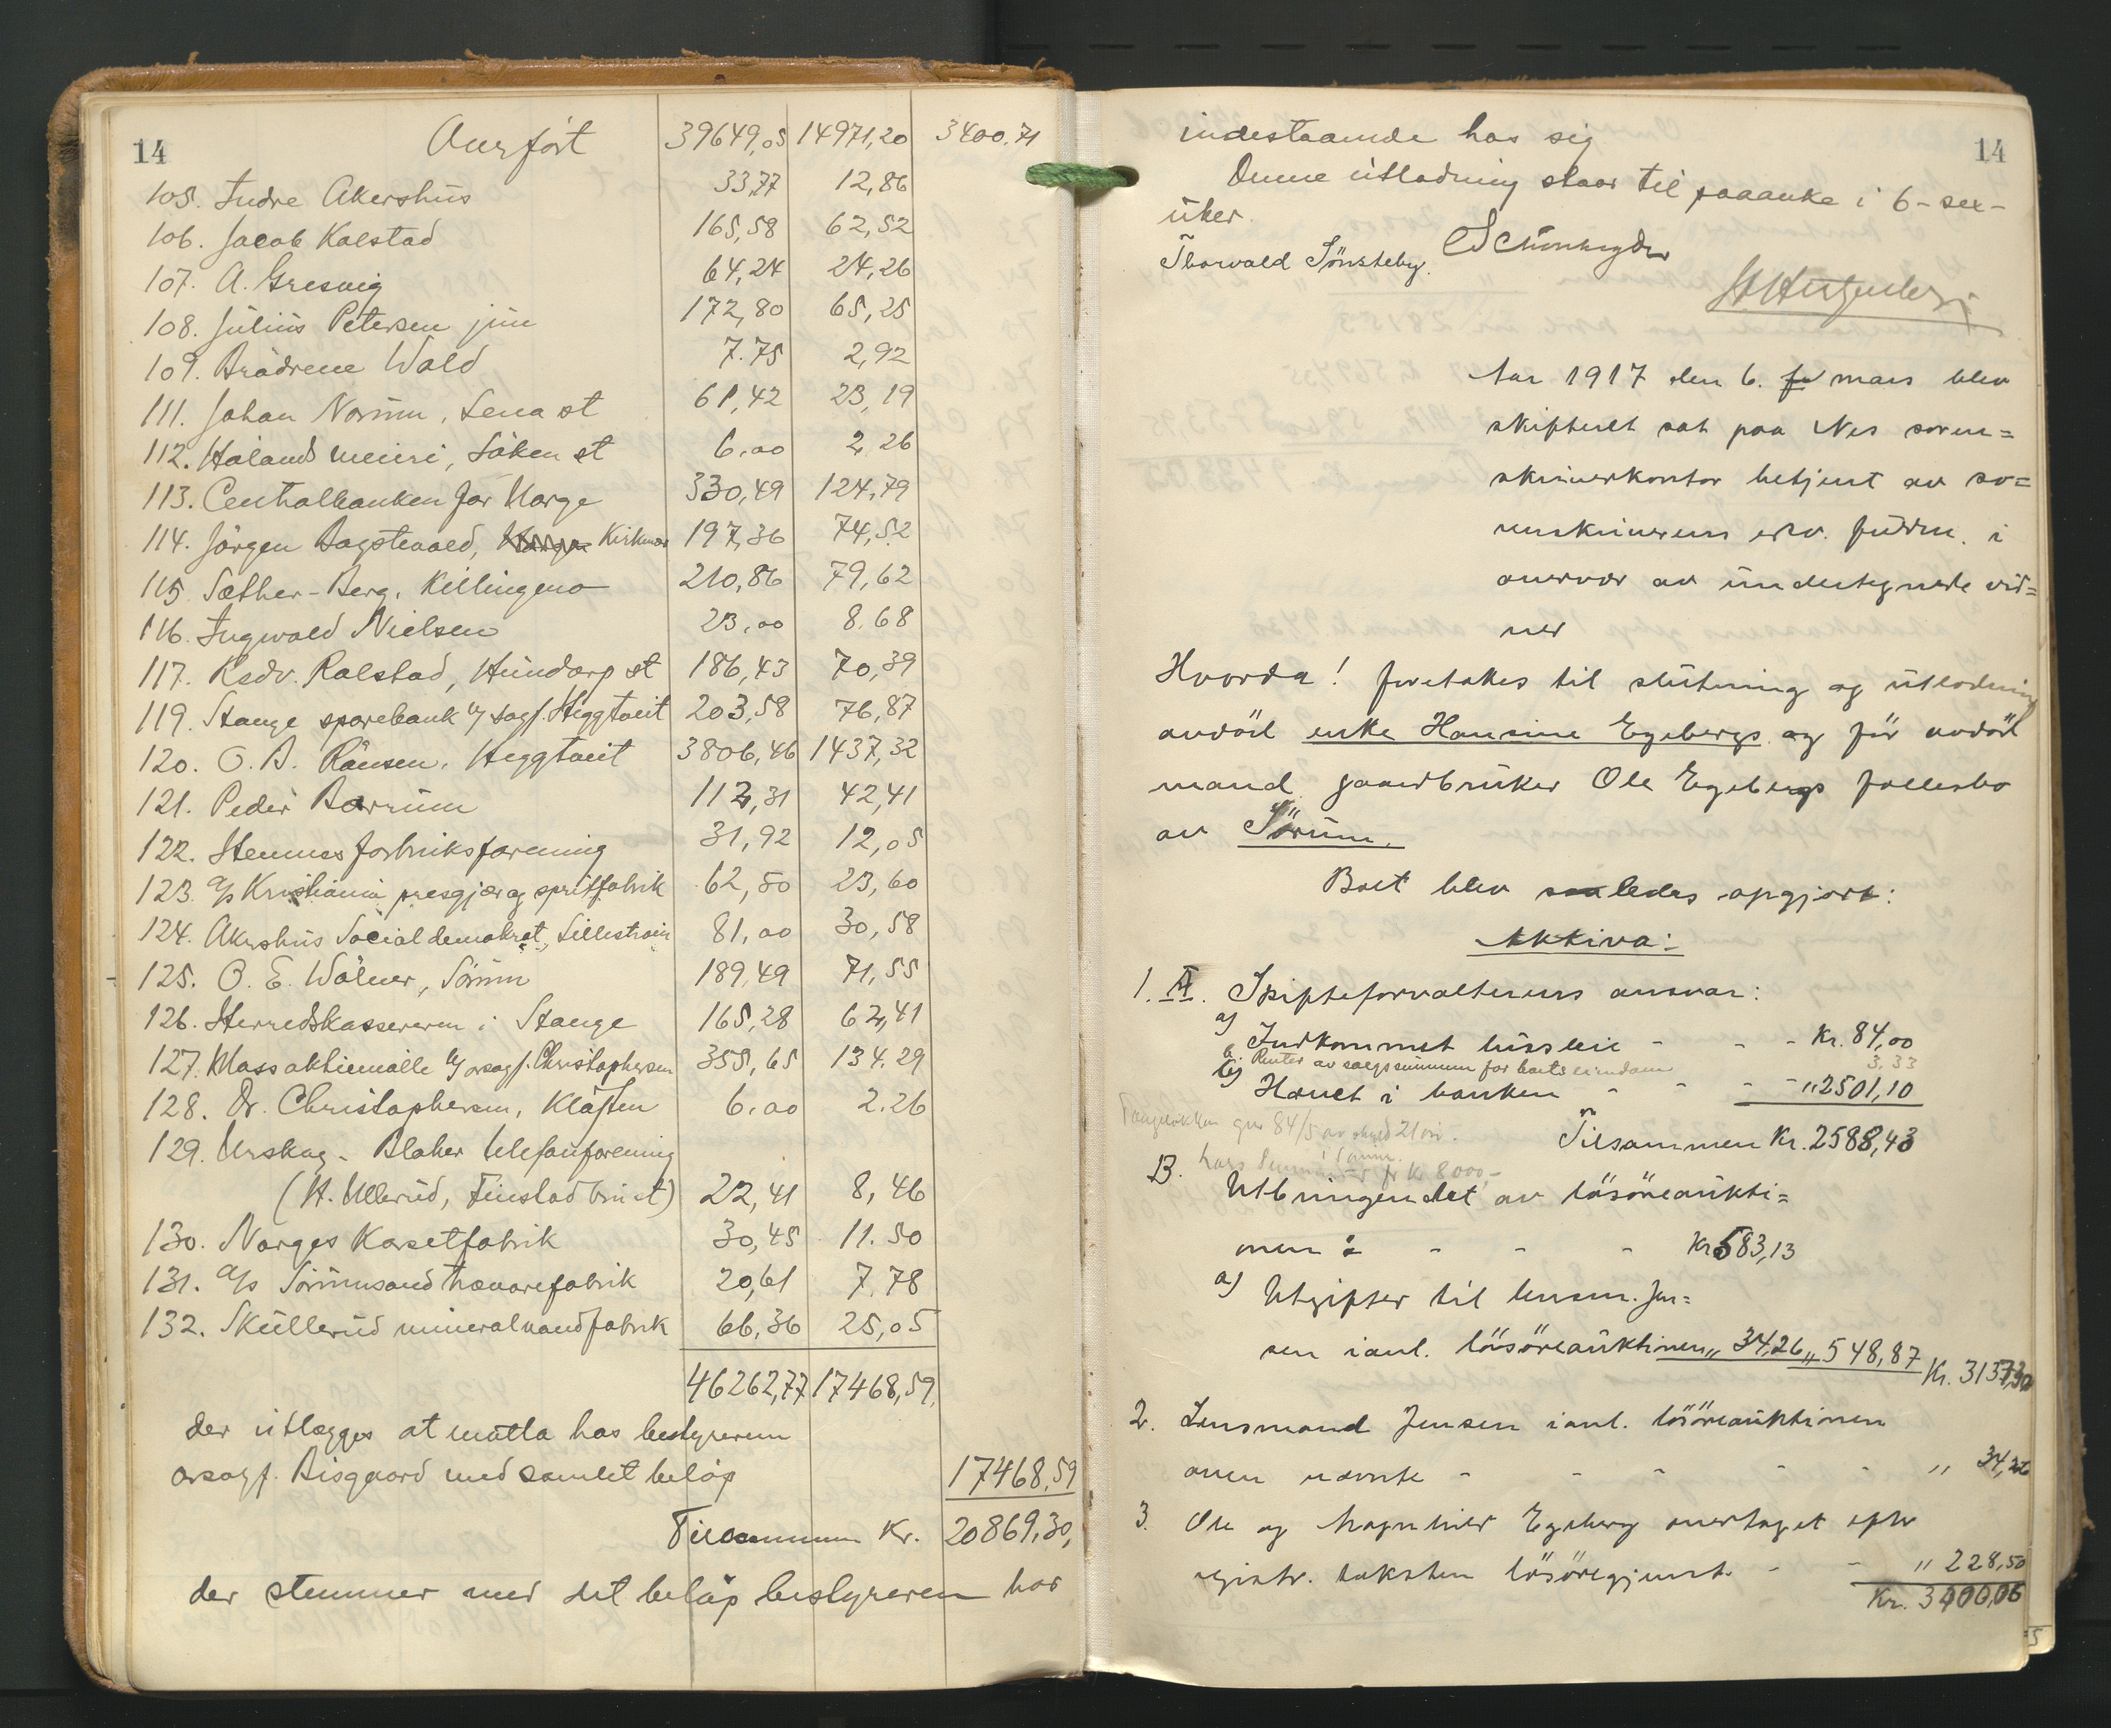 14
Overført 39649,05 14971,20 3400.71
105. Indre Akershus 33,77 12,86
106. Jacob Kolstad 165,58 62,52
107. A. Gresvig 64,24 24,26
108. Julius Petersen jun 172,80 65,25
109. Brødrene Wold 7.75 2,92
111. Johan Norum, Lena st 61,42 23,19
112. Hølands meieri, Løken st 6.00 2,26
113. Centralbanken for Norge 330,49 124,79
114. Jørgen Bagstevold, Kirkenær 197,36 74,52
115. Sæther-Berg, Killingmo 210,86 79,62
116. Ingwald Nielsen 23.00 8.68
117. Rsdv. Rolstad, Hundorp st 186,43 70,39
119. Stange sparebank v/ sagf. Heggtveit 203,58 76,87
120. O. A. Rønsen, Heggtveit 3806,46 1437,32
121. Peder Borrum 112,31 42,41
122. Hemnes forbruksforening 31,92 12,05
123. a/s Kristiania presgjær og spritfabrik 62,50 23,60
124. Akershus Socialdemokrat, Lillestrøm 81,00 30,58
125. O. E. Wølner, Sørum 189,49 71,55
126. Herredskassereren i Stange 165,28 62,41
127. Moss aktiemølle v/ orsagf. Christophersen 355,65 134.29
128. Dr. Christophersen, Kløften 6.00 2.26
129. Urskog-Blaker telefonforening
(H. Ullerud, Finstadbru st) 22,41 8,46
130. Norges Korsetfabrik 30,45 11.50
131. a/s Sørumsand trævarefabrik 20,61 7.78
132. Skullerud mineralvandfabrik 66,36 25,05
46262,77 17468,59
der utlægges at motta hos bestyreren
orsagf. Bisgaard med samlet beløp 17468,59
Tilsammen Kr. 20869,30,
der stemmer med det beløp bestyreren har
14
indestaaende hos sig
Denne utlodning staar til paaanke i 6-sex-
uker.
Thorvald Sønsteby.
Aar 1917 den 6. mars blev
skifteret sat paa Nes soren=
skriverkontor betjent av so=
renskriverens edsv. fuldm. i
overvær av undertegnede vid=
ner
Hvorda! foretakes til slutning og utlodning
avdød enke Hansine Egebergs og før avdød
mand gaardbruker Ole Egebergs fællesbo
av Sørum.
Boet blev saaledes opgjort:
Aktiva:
1. A. Skifteforvalterens ansvar:
a) Indkommet husleie - - - Kr. 84,00
b. Renter av salgssummen for boets eiendom 3,33
c) Hævet i banken - - - - " 2501,10
Tilsammen Kr. 2588,43
B. Utbringendet av løsøreaukti=
onen - - - Kr 583,13
a) Utgifter til lensm. Jen=
sen i anl. løsøreauktionen " 34,26 " 548,87 Kr. 3137,30
2. Lensmand Jensen i anl. løsøreauktionen
oven nævnte - - - - - " 34,26
3. Ole og Magnhild Egeberg overtaget efter
registr. taksten løsøregjenst. - - " 228,50
Kr. 3400,06